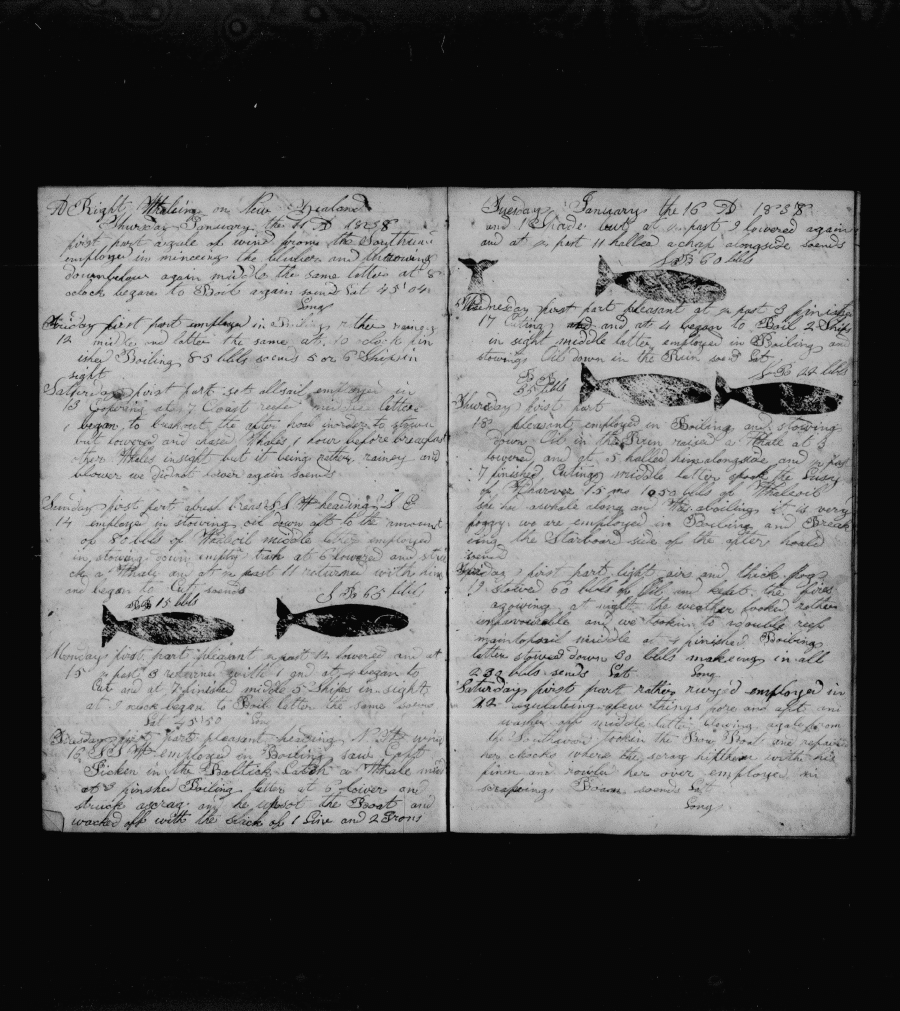 A Right Whaleing on New Zealand
Thursday January the 11 D 1838
first part a gale of wind from the Southward
employed in minceing the blubber and throwing
down below again middle the same latter at 8
oclock began to Boil again sends Lat 45°04
Long
Friday first part employed in Boiling rather raing
12 middle and latter the same at 10 oclock fin
ished Boiling 85 bbls sends 5 or 6 Ships in
sight
Saturday first part set all sail employed in
13 Coopering at 7 reef middle latter
began to bushout the after hoal in order to stowin
but lowered and chased Whales 1 hour before breakfast
other Whales insight but it being rather rainey and
blowey we did not lower again sends
Sunday first part abrest breas S S W heading S E
14 employed in stowing oil down aft to the amount
of 80 bbls of Whaleoil middle latter employed
in stowing down empty at 6 lowered and stru
ck a Whale and at ½ past 11 returned with him
and began to Cut sends
15 bbls S B 65 bbls
Monday first part pleasant ½ past 12 lowered and at
15 ½ past 3 returned with 1 and at 4 began to
Cut and at 7 finished middle 5 Ships in sight
at 1 oclock began to Boil latter the same sends
Lat 45°50 Long
Tuesday first part pleasant heading N W wind
16 S S W employed in Boiling saw Capt
in the Baltick Catch a Whale midd
at 3 finshed Boiling latter at 6 lower and
struck a scrag and he upsot the Boat and
wacked off with the slack of 1 Line and 2 Irons
Tuesday January the 16 D 1838
and 1 Spade lost at ½ past 9 lowered again
and at ½ past 11 halled a chap alongside sends
S B 60 bbls
Wednesday first part pleasant at ½ past 3 finishe
17 Cuting and and at 4 began to Boil 2 Ships
in sight middle latter employed in Boiling and
stowing Oil down in the Run sends Lat
S B
85 bbls
Thursday first part
18 pleasant employed in Boiling and stowing
down Oil in the Run raised a Whale at 3
lowered and at 5 halled him alongside and ½ past
7 finished Cuting middle latter spoke the
of 15 mo 1050 bbls of Whaleoil
a whale along and boiling it is very
foggy we are employed in Boiling and Break
ing the Starboard side of the after hoald
Friday first part light airs and thick fog
19 stowed 60 bbls of Oil and kept the fires
agoweing at night the weather looked rather
unfavourable and we took in reef
maintopsail middle at 4 finished Boiling
latter stowed down 30 bbls makeing in all
230 bbls sends Lat Long
Saturday first part rather ruged employed in
a few things fore and aft and
middle latter blowing a gale from
the Southward took in the Bow Boat and repaired
her chocks where the scrag hitt her with his
finn and rowled her over employed in
scrapeing Bone sends Lat
Long